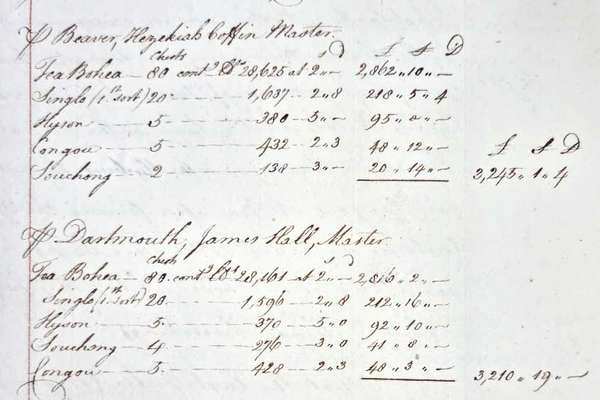 ⅌ Beaver, Hezekiah Coffin Master.
Chests s D £ S D
Tea Bohea — 80 cont.g lbs 28,625 at 2 〃 — 2,862 〃 10 〃 —
Singlo (1st sort) 20 — 1,637 — 2 〃 8 218 〃 5 〃 4
Hyson — 5 — 380 — 5 〃 — 95 〃 0 〃 —
Congou — 5 — 432 — 2 〃 3 48 〃 12 〃 — £ S D
Souchong — 2 — 138 — 3 〃 — 20 〃 14 〃 — 3,245 〃 1 〃 4
⅌ Dartmouth, James Hall, Master
Chests s D
Tea Bohea — 80 cont.g lbs 28,161 at 2 〃 — 2,816 〃 2 〃 —
Singlo (1st sort) 20 — 1,596 — 2 〃 8 212 〃 16 〃 —
Hyson — 5 — 370 — 5 〃 0 92 〃 10 〃 —
Souchong — 4 — 276 — 3 〃 0 41 〃 8 〃 —
Congou — 5 — 428 — 2 〃 3 48 〃 3 〃 — 3,210 〃 19 〃 —